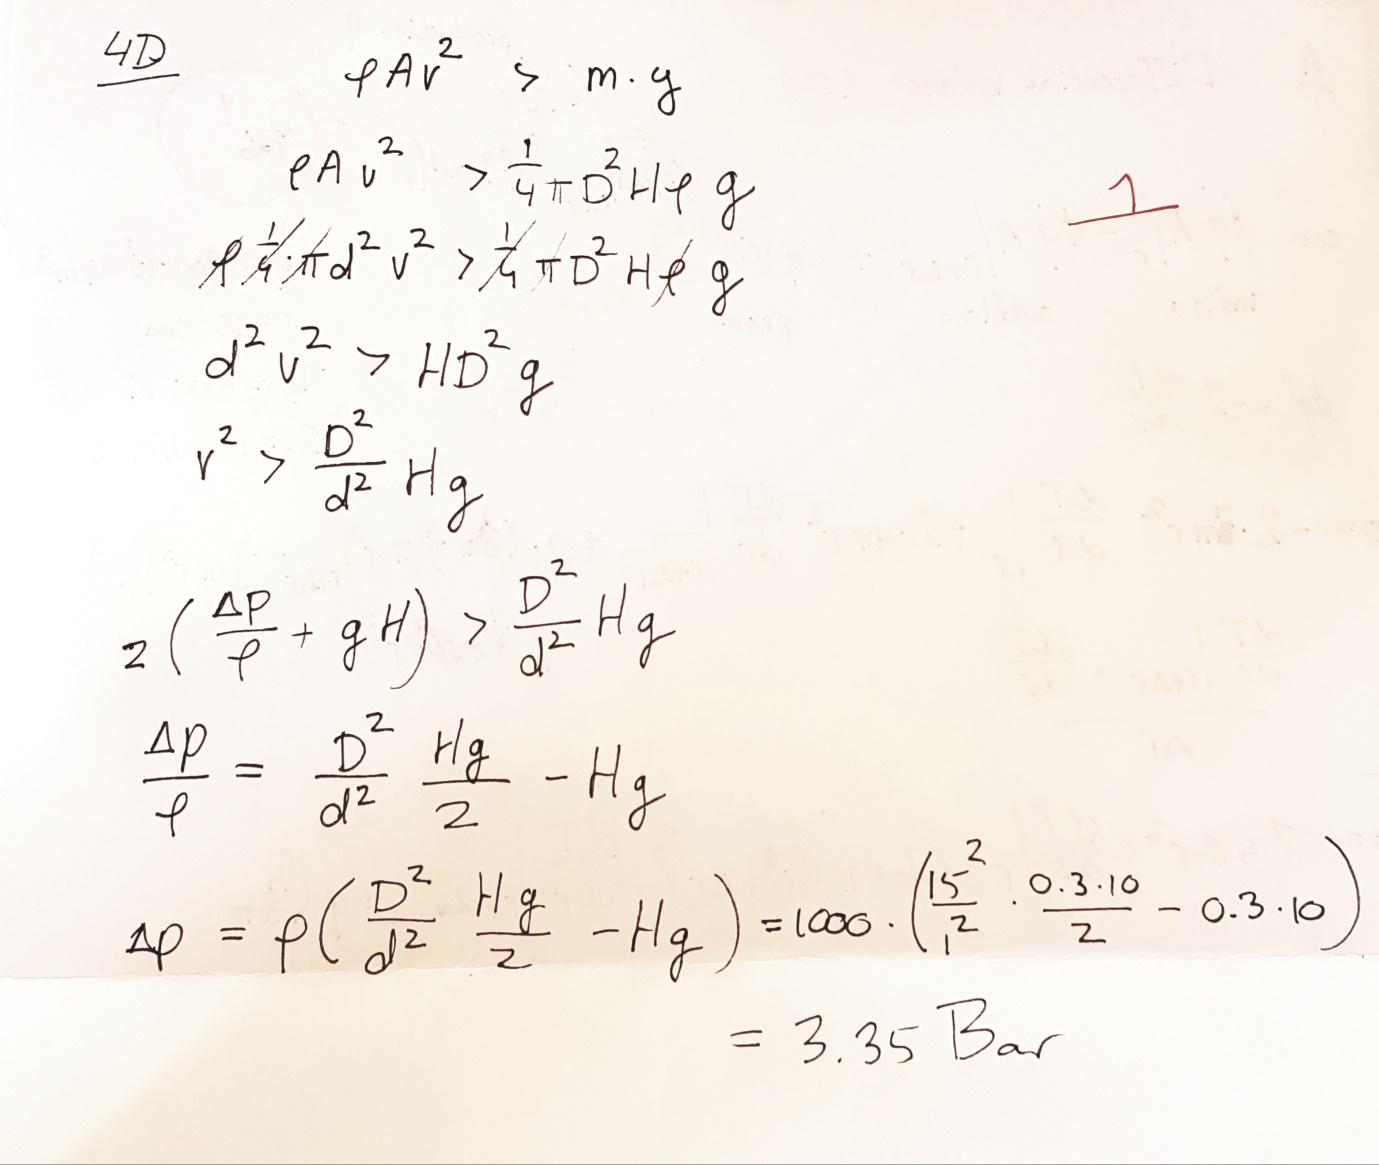 4D
ρAv² > m·g
ρAv² > 1/4 πD²Hρ g
ρ 1/4·πd²v² > 1/4 πD²Hρ g
d²v² > HD²g
v² > D²/d² Hg
2(Δp/ρ + gH) > D²/d² Hg
Δp/ρ = D²/d² Hg/2 - Hg
Δp = ρ(D²/d² Hg/2 - Hg) = 1000·(15²/1² · 0.3·10/2 - 0.3·10)
= 3.35 Bar
1